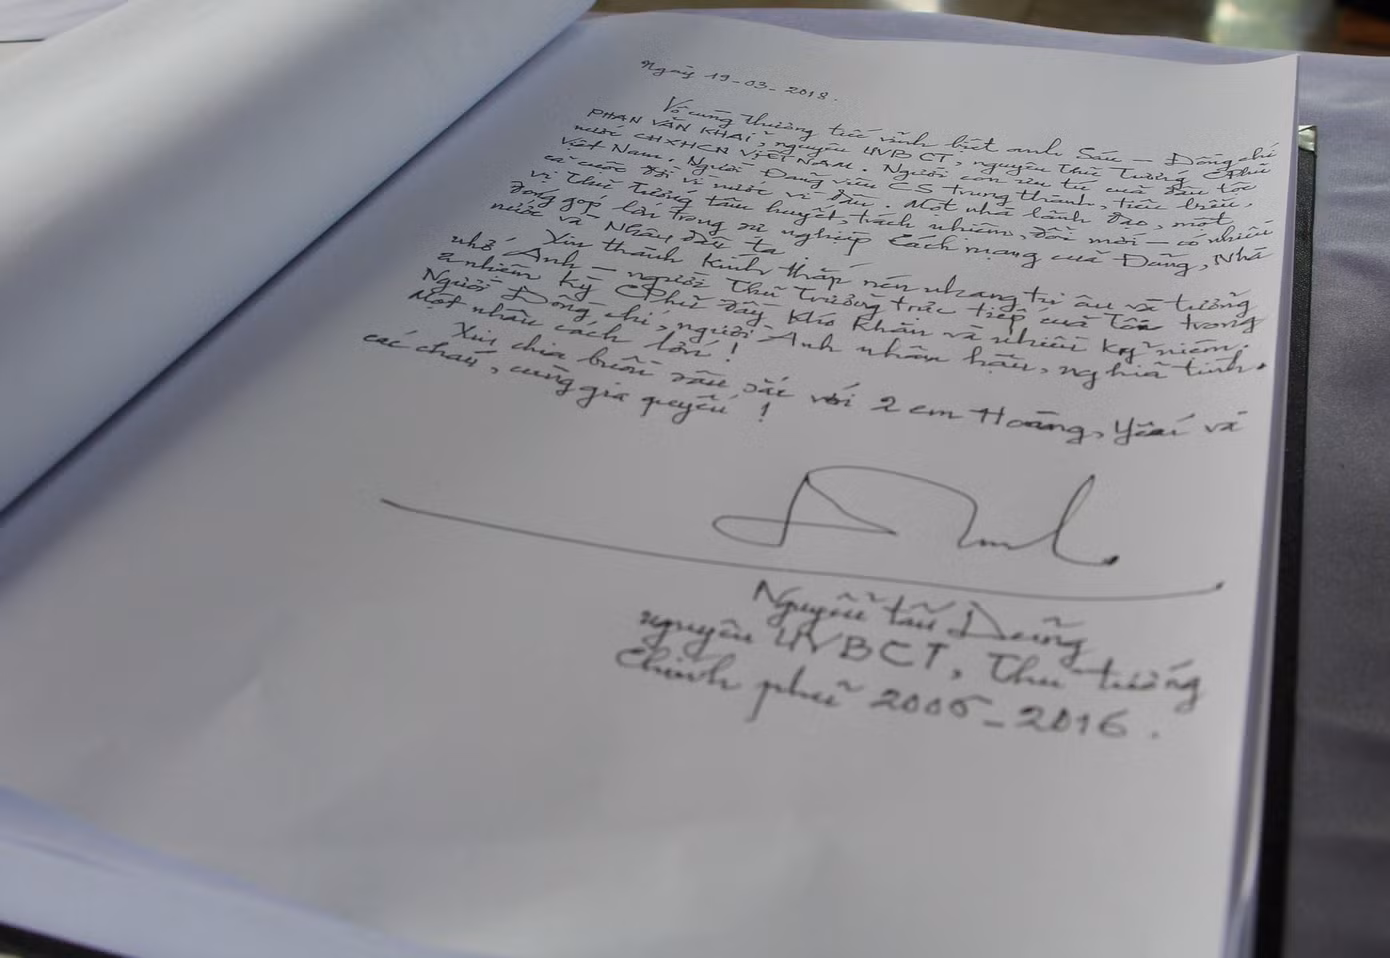 Ngày 19-03-2018.
Vô cùng thương tiếc vĩnh biệt anh Sáu - Đồng chí
PHAN VĂN KHẢI, nguyên UVBCT, nguyên Thủ Tướng CPhủ
nước CHXHCN VIỆT NAM. Người con ưu tú của dân tộc
Việt Nam. Người Đảng viên CS trung thành, tiêu biểu,
cả cuộc đời vì nước vì dân. Một nhà lãnh đạo, một
vị Thủ Tướng tâm huyết, trách nhiệm, đổi mới - có nhiều
đóng góp lớn trong sự nghiệp Cách mạng của Đảng, Nhà
nước và Nhân dân ta.
Xin thành kính thắp nén nhang tri ân và tưởng
nhớ Anh - người Thủ Trưởng trực tiếp của Tôi trong
nhiệm kỳ CPhủ đầy khó khăn và nhiều kỷ niệm.
Người Đồng chí, người Anh nhân hậu, nghĩa tình.
Một nhân cách lớn!
Xin chia buồn sâu sắc với 2 em Hoàng, Yến và
các cháu, cùng gia quyến!
Nguyễn Tấn Dũng
nguyên UVBCT, Thủ tướng
Chính phủ 2006-2016.